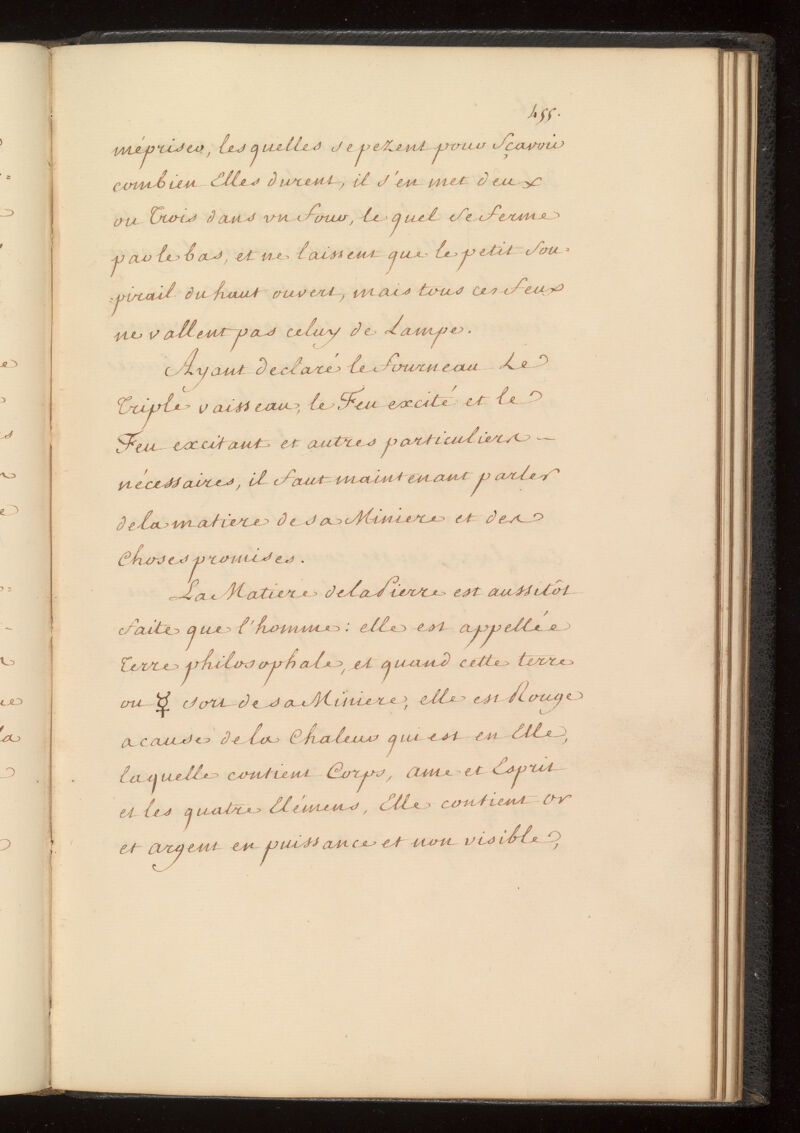 455.
mépriser, lesquelles se pezent pour Sçavoir
combien Elles durent, il s'en met deux
ou Trois dans vn four, le quel se ferme
par le bas, et ne laissent que le petit Sou-
pirail du haut ouvert, mais tous ces feux
ne vallent pas celuy de Lampe.
Ayant declaré le fourneau Le
Triple vaisseau, le Feu excité et le
Feu excitant et autres particuliers -
nécessaires, il faut maintenant parler
de la matiere de sa Miniere et des
Choses promises.
La Matiere de la Pierre est aussitôt
faite que l'homme: elle est appellée
Terre philosophale, et quand cette terre
ou ☿ sort de sa Miniere, elle est Rouge
a cause de la Chaleur qui est en Elle,
laquelle contient Corps, ame et Esprit
et les quatre Elémens, Elle contient or
et argent en puissance et non visible,